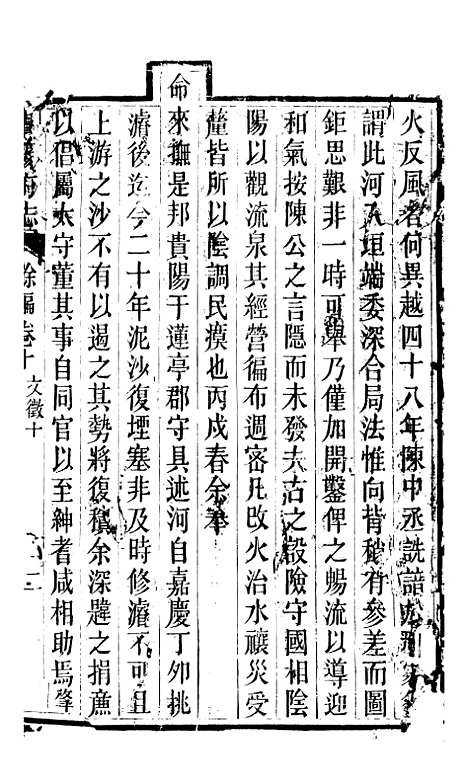 火反風者何異越四十八年陳中丞詵諧
謂此河入垣端委深合局法惟向背稍有參差而圖
鉅思艱非一時可舉乃僅加開鑿俾之暢流以導迎
和氣按陳公之言隱而未發夫古之設險守國相陰
陽以觀流泉其經營徧布週密凡改火治水禳災受
釐皆所以陰調民瘼也丙戍春余奉
命來撫是邦貴陽于蓮亭郡守具述河自嘉慶丁卯挑
濬後迄今二十年泥沙復堙塞非及時修濬不可且
上游之沙不有以遏之其勢將復積余深韙之捐亷
以倡屬太守董其事自同官以至紳耆咸相助焉肇
府志 餘編卷十 文徵十